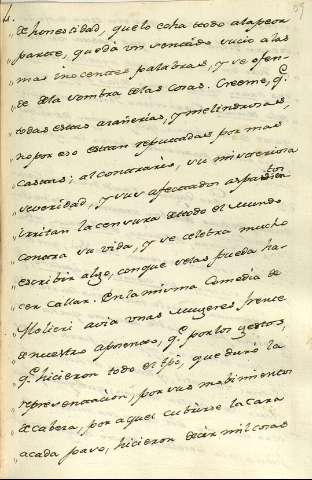 4.
59
"de honestidad, que lo echa todo a la peor
"parte, que dà un sentido sucio a las
"mas inocentes palabras, y se ofen-
"de de la sombra de las cosas. Creeme, q.e
"todas estas arañerias, y melindrosas,
"no por eso estan reputadas por mas
"castas; al contrario, su misteriosa
"severidad, y sus afectados aspavientos
"irritan la censura de todo el Mundo
"contra su vida, y se celebra mucho
"escribir algo, con que se las pueda ha-
"cer callar. En la misma Comedia de
"Molieri avia unas Mugeres frente
"de nuestro aposento, q.e por los gestos,
"q.e hicieron todo el tpo, que durò la
"representacion, por sus mobimientos
"de cabeza, por aquel cubrirse la cara
"a cada paso, hicieron decir mil cosas